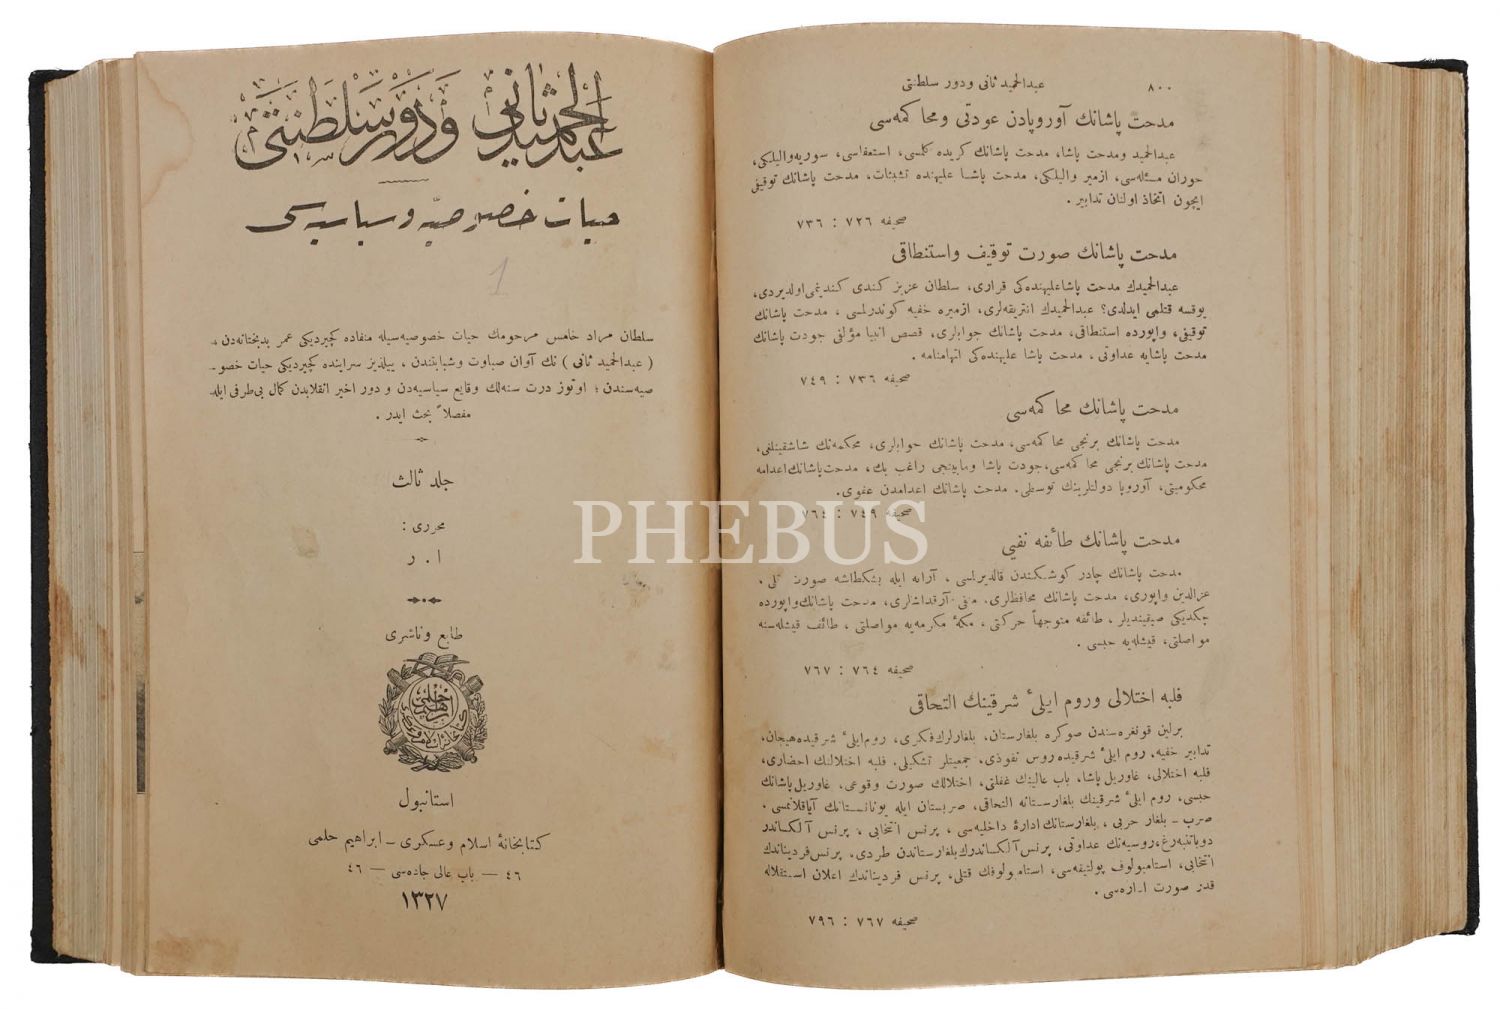 عبدالحمید ثانی ودور سلطنتی
حیات خصوصیه وسیاسیه‌سی
1
سلطان مراد خامس مرحومك حیات خصوصیه‌سیله منفاده کچیردیکی عمر بدبختانه‌دن ،
( عبدالحمید ثانی ) نك آوان صباوت وشبابتندن ، ییلدیز سراینده کچیردیکی حیات خصو -
صیه‌سندن ؛ اوتوز درت سنه‌لك وقایع سیاسیه‌دن و دور اخیر انقلابدن کمال بی‌طرفی ایله
مفصلاً بحث ایدر .
جلد ثالث
محرری :
ا . ر
طابع وناشری
استانبول
کتابخانهٔ اسلام وعسکری – ابراهیم حلمی
٤٦ – باب عالی جاده‌سی – ٤٦
١٣٢٧
٨٠٠ عبدالحمید ثانی ودور سلطنتی
مدحت پاشانك آوروپادن عودتی ومحاکمه‌سی
عبدالحمید ومدحت پاشا، مدحت پاشانك کریده کلمسی، استعفاسی، سوریه والیلکی،
حوران مسئله‌سی، ازمیر والیلکی، مدحت پاشا علیهنده تشبثات، مدحت پاشانك توقیفی
ایچون اتخاذ اولنان تدابیر .
صحیفه ٧٢٦ : ٧٣٦
مدحت پاشانك صورت توقیف واستنطاقی
عبدالحمیدك مدحت پاشا علیهنده‌کی قراری، سلطان عزیز کندی کندینیمی اولدیردی،
یوقسه قتلمی ایدلدی؟ عبدالحمیدك انتریقه‌لری، ازمیره خفیه کوندرلمسی ، مدحت پاشانك
توقیفی، واپورده استنطاقی، مدحت پاشانك جوابلری، قصص انبیا مؤلفی جودت پاشانك
مدحت پاشایه عداوتی ، مدحت پاشا علیهنده‌کی اتهامنامه .
صحیفه ٧٣٦ : ٧٤٩
مدحت پاشانك محاکمه‌سی
مدحت پاشانك برنجی محاکمه‌سی، مدحت پاشانك جوابلری، محکمه‌نك شاشقینلغی،
مدحت پاشانك برنجی محاکمه‌سی، جودت پاشا ومابینجی راغب بك، مدحت پاشانك اعدامه
محکومیتی، آوروپا دولتلرینك توسطی. مدحت پاشانك اعدامدن عفوی.
صحیفه ٧٤٩ : ٧٦٤
PHEBUS
مدحت پاشانك طائفه نفیی
مدحت پاشانك چادر کوشکندن قالدیرلمسی ، آرابه ایله بشکطاشه صورت نقلی .
عزالدین واپوری، مدحت پاشانك محافظلری. منفی آرقداشلری، مدحت پاشانك واپورده
چکدیکی صیقیندیلر ، طائفه متوجهاً حرکتی ، مکهٔ مکرمه‌یه مواصلتی ، طائف قیشله‌سنه
مواصلتی، قیشله‌یه حبسی .
صحیفه ٧٦٤ : ٧٦٧
فلبه اختلالی وروم ایلیٔ شرقینك التحاقی
برلین قونغره‌سندن صوکره بلغارستان، بلغارلرك فکری، روم ایلیٔ شرقیده هیجان،
تدابیر خفیه. روم ایلیٔ شرقیده روس نفوذی، جمعیتلر تشکیلی. فلبه اختلالنك احضاری،
فلبه اختلالی، غاوریل پاشا، باب عالینك غفلتی، اختلالك صورت وقوعی، غاوریل پاشانك
حبسی، روم ایلیٔ شرقینك بلغارستانه التحاقی، صربستان ایله یونانستانك آیاقلانمسی .
صرب – بلغار حربی ، بلغارستانك ادارهٔ داخلیه‌سی ، پرنس انتخابی ، پرنس آلکساندر
دوباتنبه‌رغ، روسیه‌نك عداوتی، پرنس آلکساندرك بلغارستاندن طردی، پرنس فردیناندك
انتخابی، استامبولوف پولتیقه‌سی، استامبولوفك قتلی، پرنس فردیناندك اعلان استقلاله
قدر صورت اداره‌سی.
صحیفه ٧٦٧ : ٧٩٦